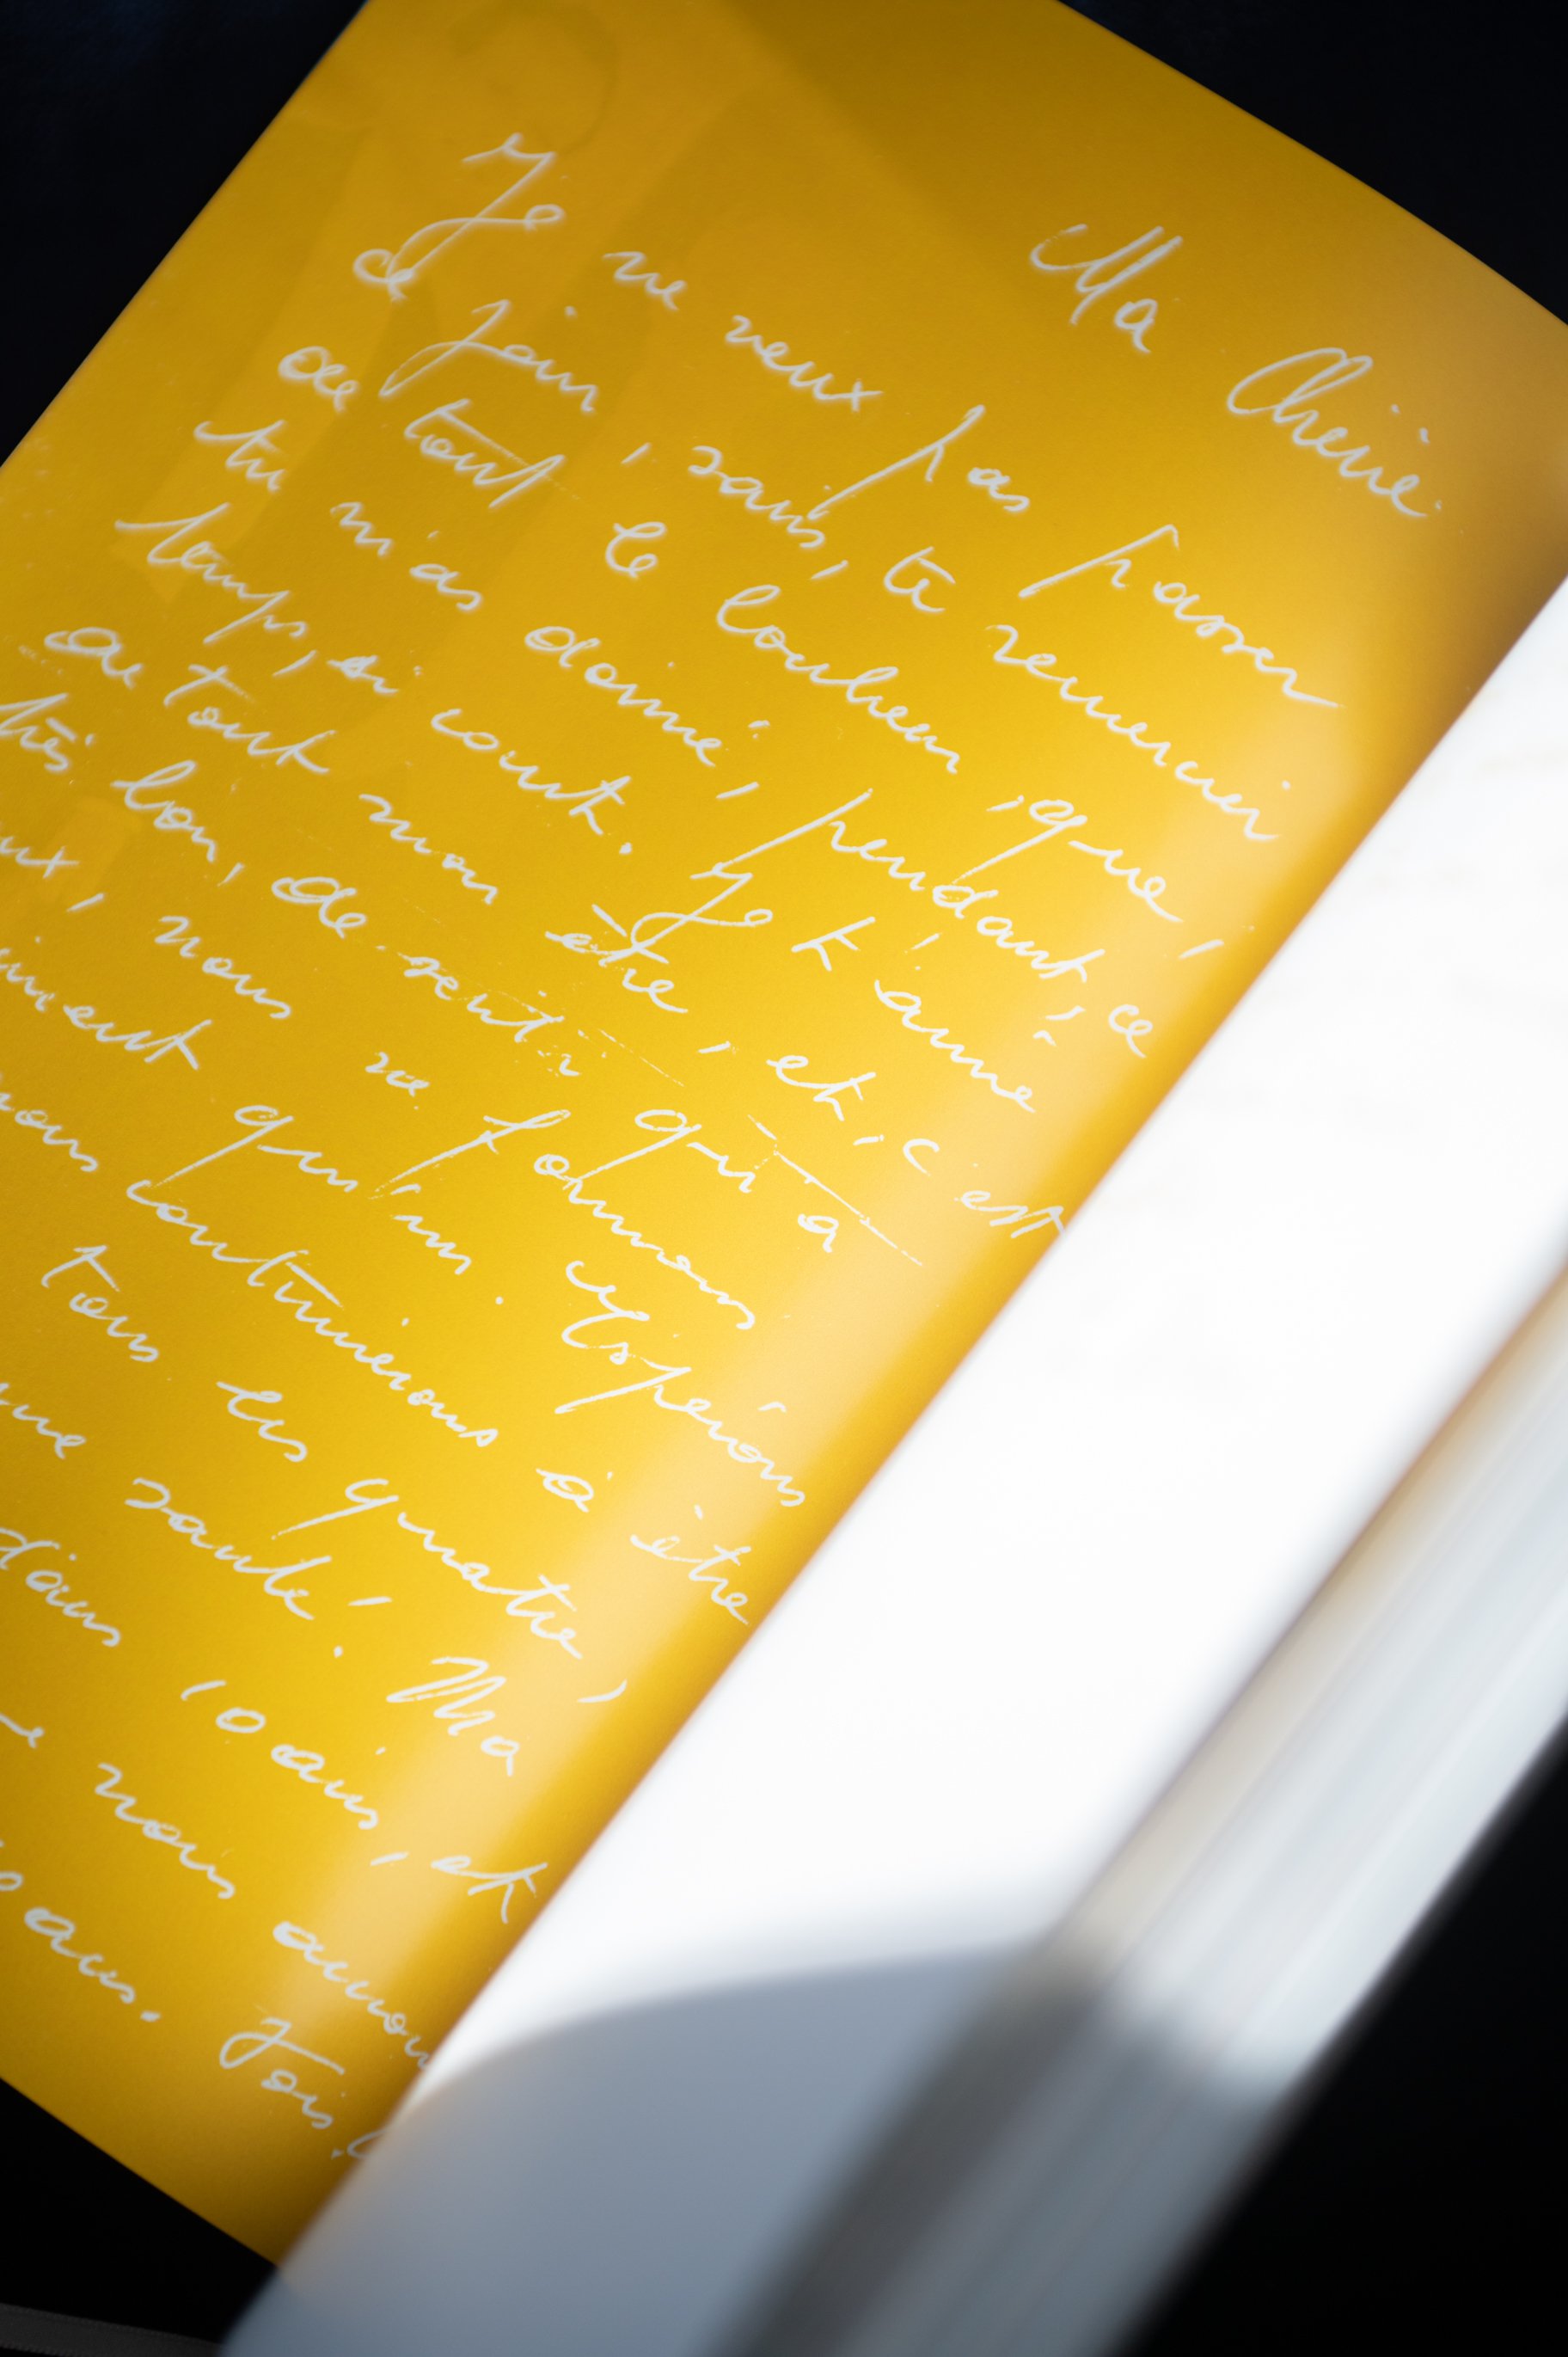 Ma Chérie.
Je ne veux pas passer
ce jour, sans, te remercier
de tout le bonheur, que,
tu m'as donné, pendant, ce
temps, si court. Je t'aime
de tout mon être, et, c'est
très bon, de sentir qu'à
nous ne formons
qu'un. Espérons
continuerons à être
tous les quatre,
santé! Ma
dans 10 ans, et
nous
ans.